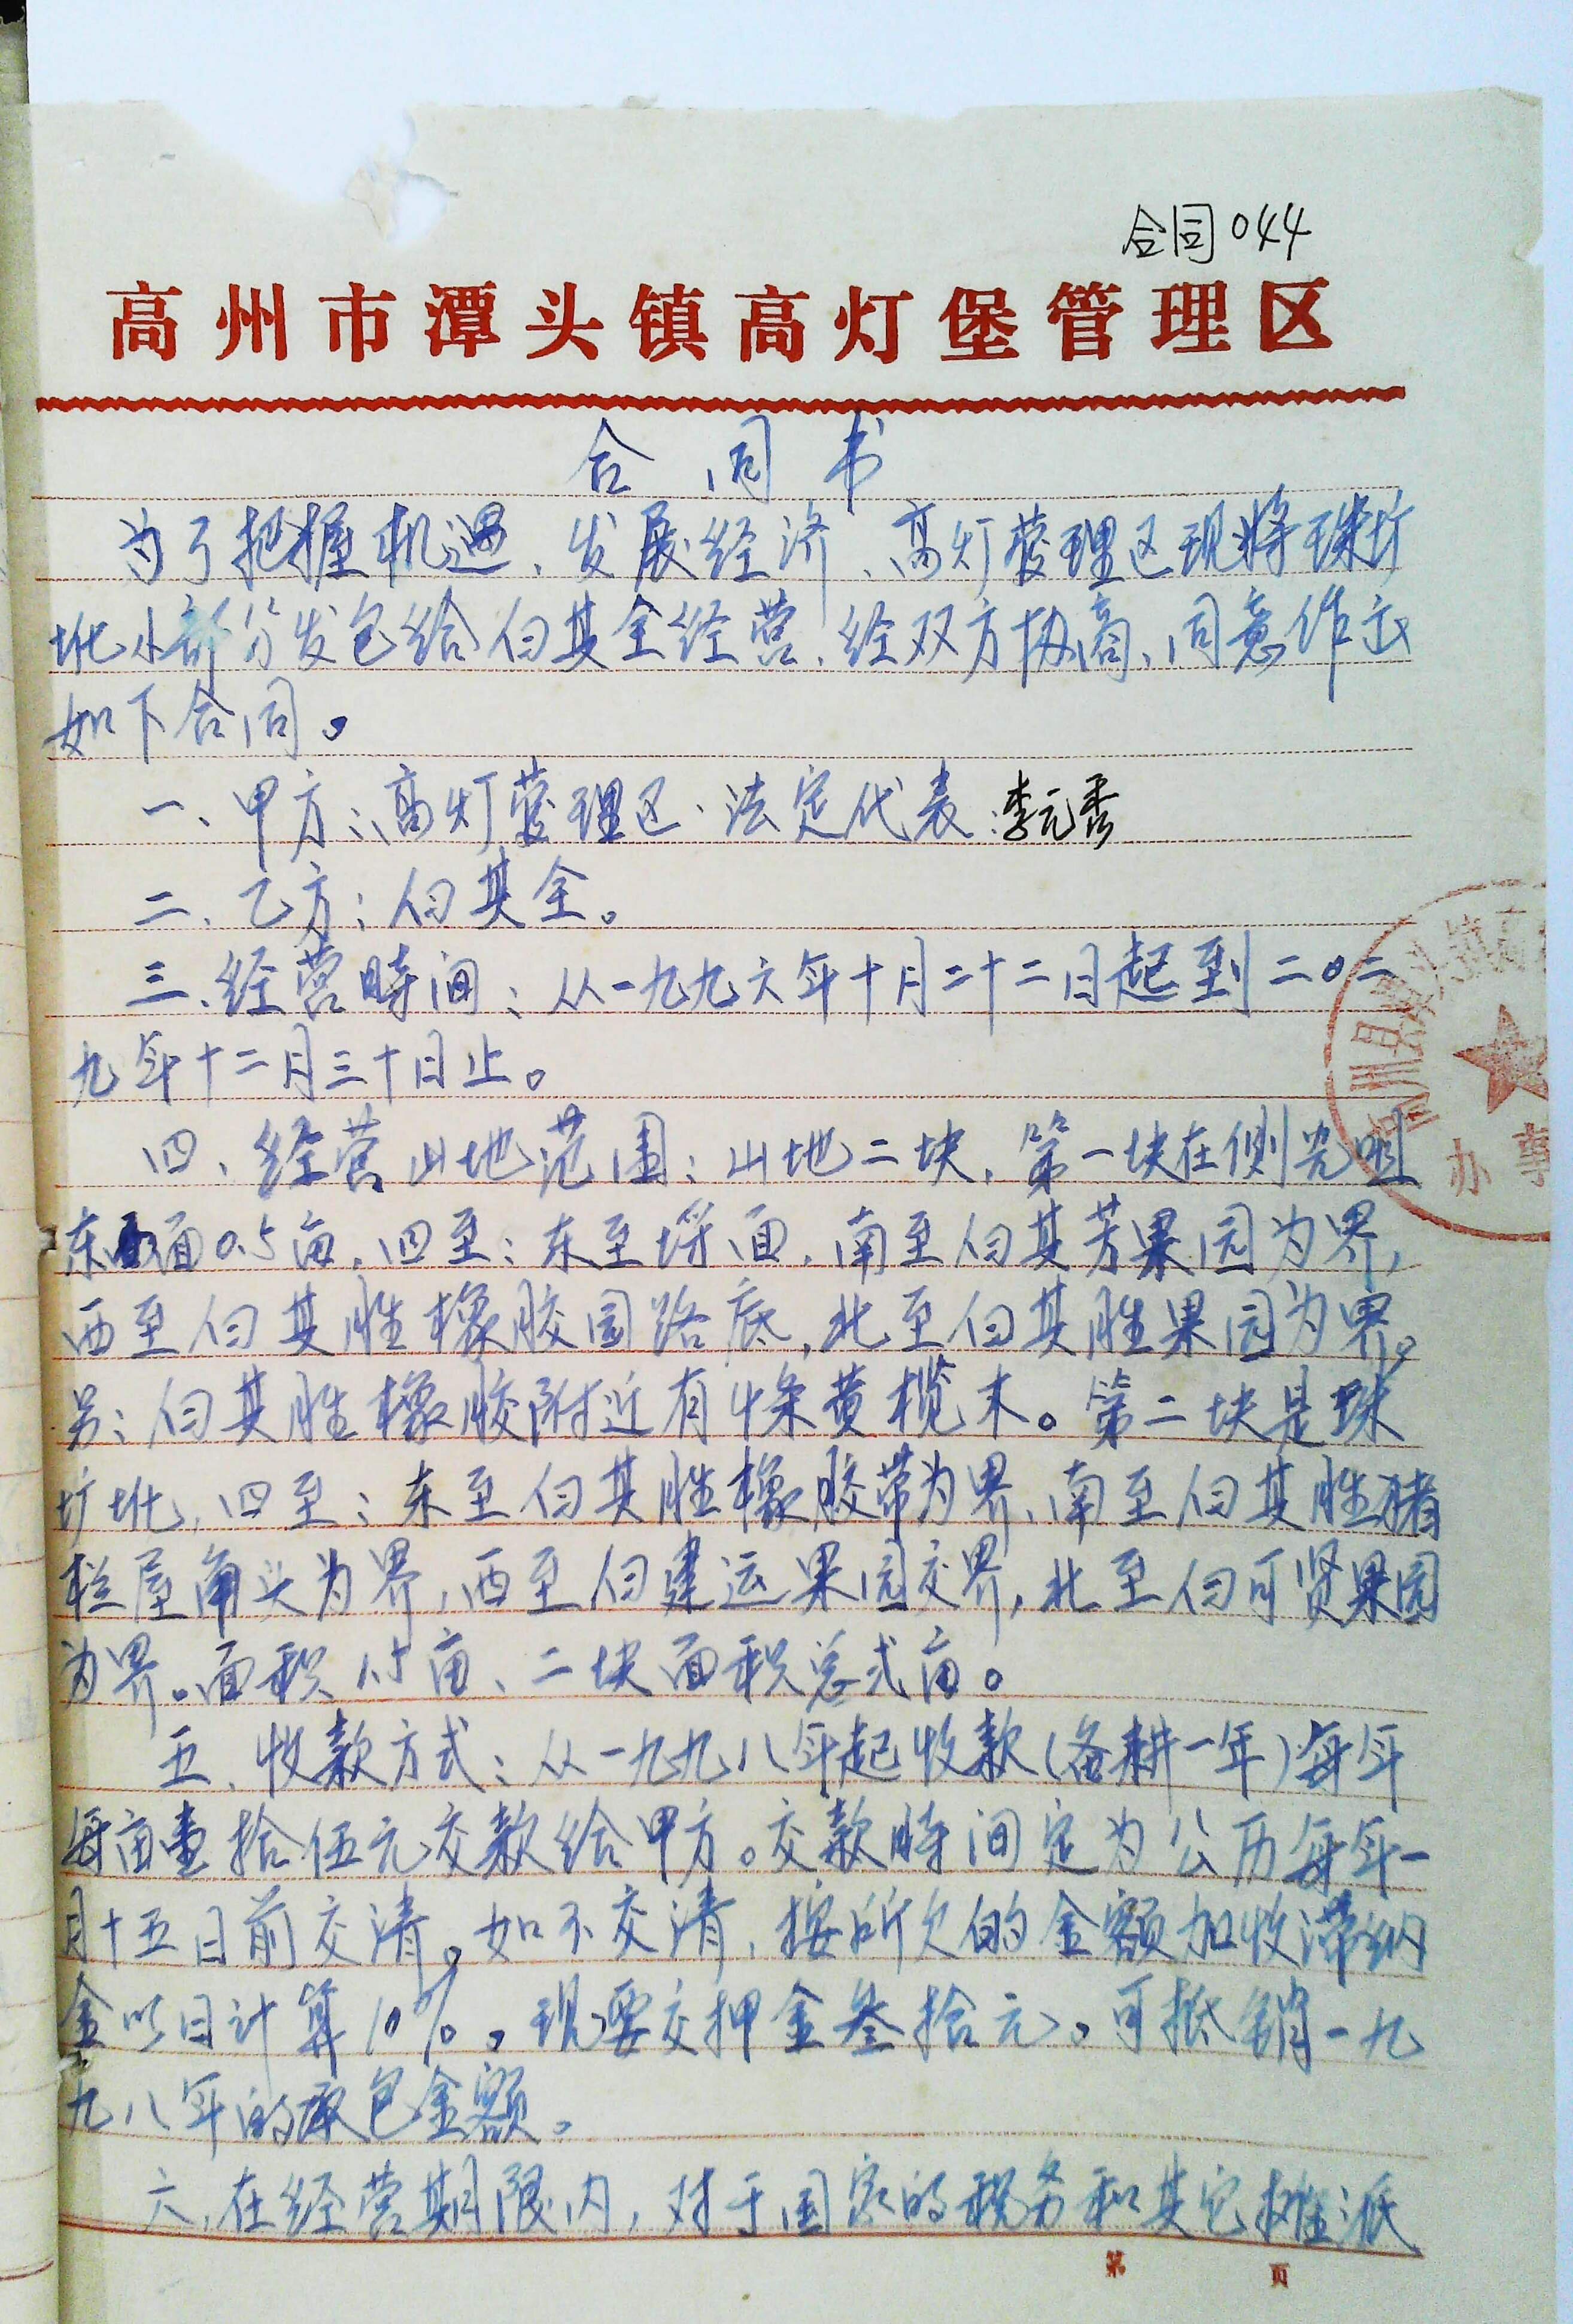 合同044
高州市潭头镇高灯堡管理区
合同书
为了把握机遇、发展经济、高灯管理区现将珠圹
坉小部分发包给伯其全经营,经双方协商,同意作立
如下合同。
一、甲方:高灯管理区.法定代表:李元秀
二、乙方:伯其全。
三、经营时间:从一九九六年十月二十二日起到二0二
九年十二月三十日止。
四、经营山地范围:山地二块,第一块在侧光咀
东面0.5亩,四至:东至垌面,南至伯其芳果园为界,
西至伯其胜橡胶园路底,北至伯其胜果园为界。
另:伯其胜橡胶附近有4条黄榄木。第二块是珠
圹坉,四至:东至伯其胜橡胶带为界,南至伯其胜猪
栏屋角头为界,西至伯建运果园交界,北至伯可贤果园
为界。面积1.5亩、二块面积总式亩。
五、收款方式:从一九九八年起收款(备耕一年)每年
每亩壹拾伍元交款给甲方。交款时间定为公历每年一
月十五日前交清。如不交清,按所欠的金额加收滞纳
金以日计算10%。现要交押金叁拾元。可抵销一九
九八年的承包金额。
六、在经营期限内,对于国家的税务和其它摊派
办事
第 页